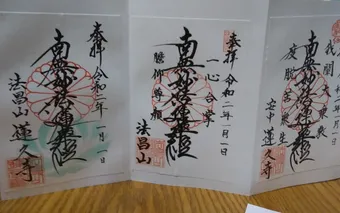 我闡大乗教
南無妙法蓮華経
度脱苦衆生
蓮久寺
奉拝 令和二年一月一日
一心合掌
南無妙法蓮華経
瞻仰尊顔
法昌山
奉拝 令和二年一月一日
南無妙法蓮華経
法昌山 蓮久寺